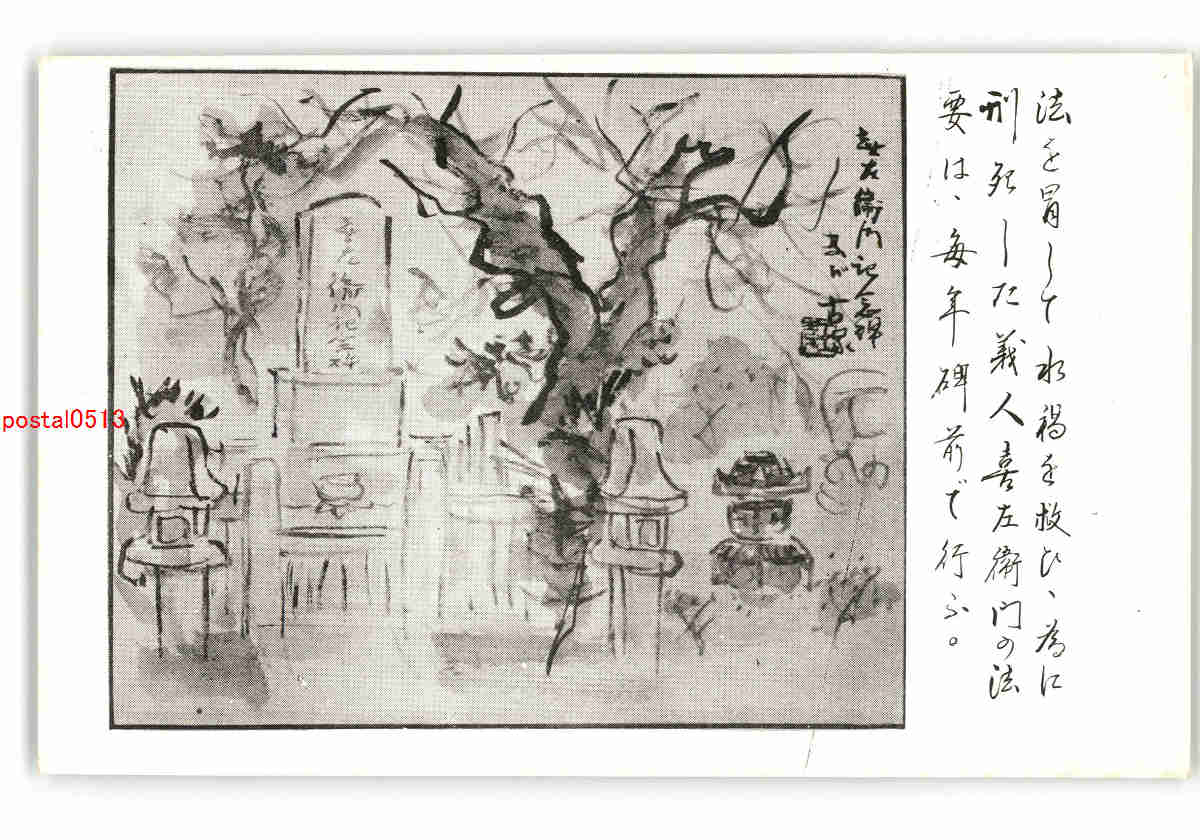 法を冒して水禍を救ひ、為に
刑死した義人喜左衛門の法
要は、毎年碑前で行ふ。
喜左衛門記念碑
喜左衛門記念碑
postal0513